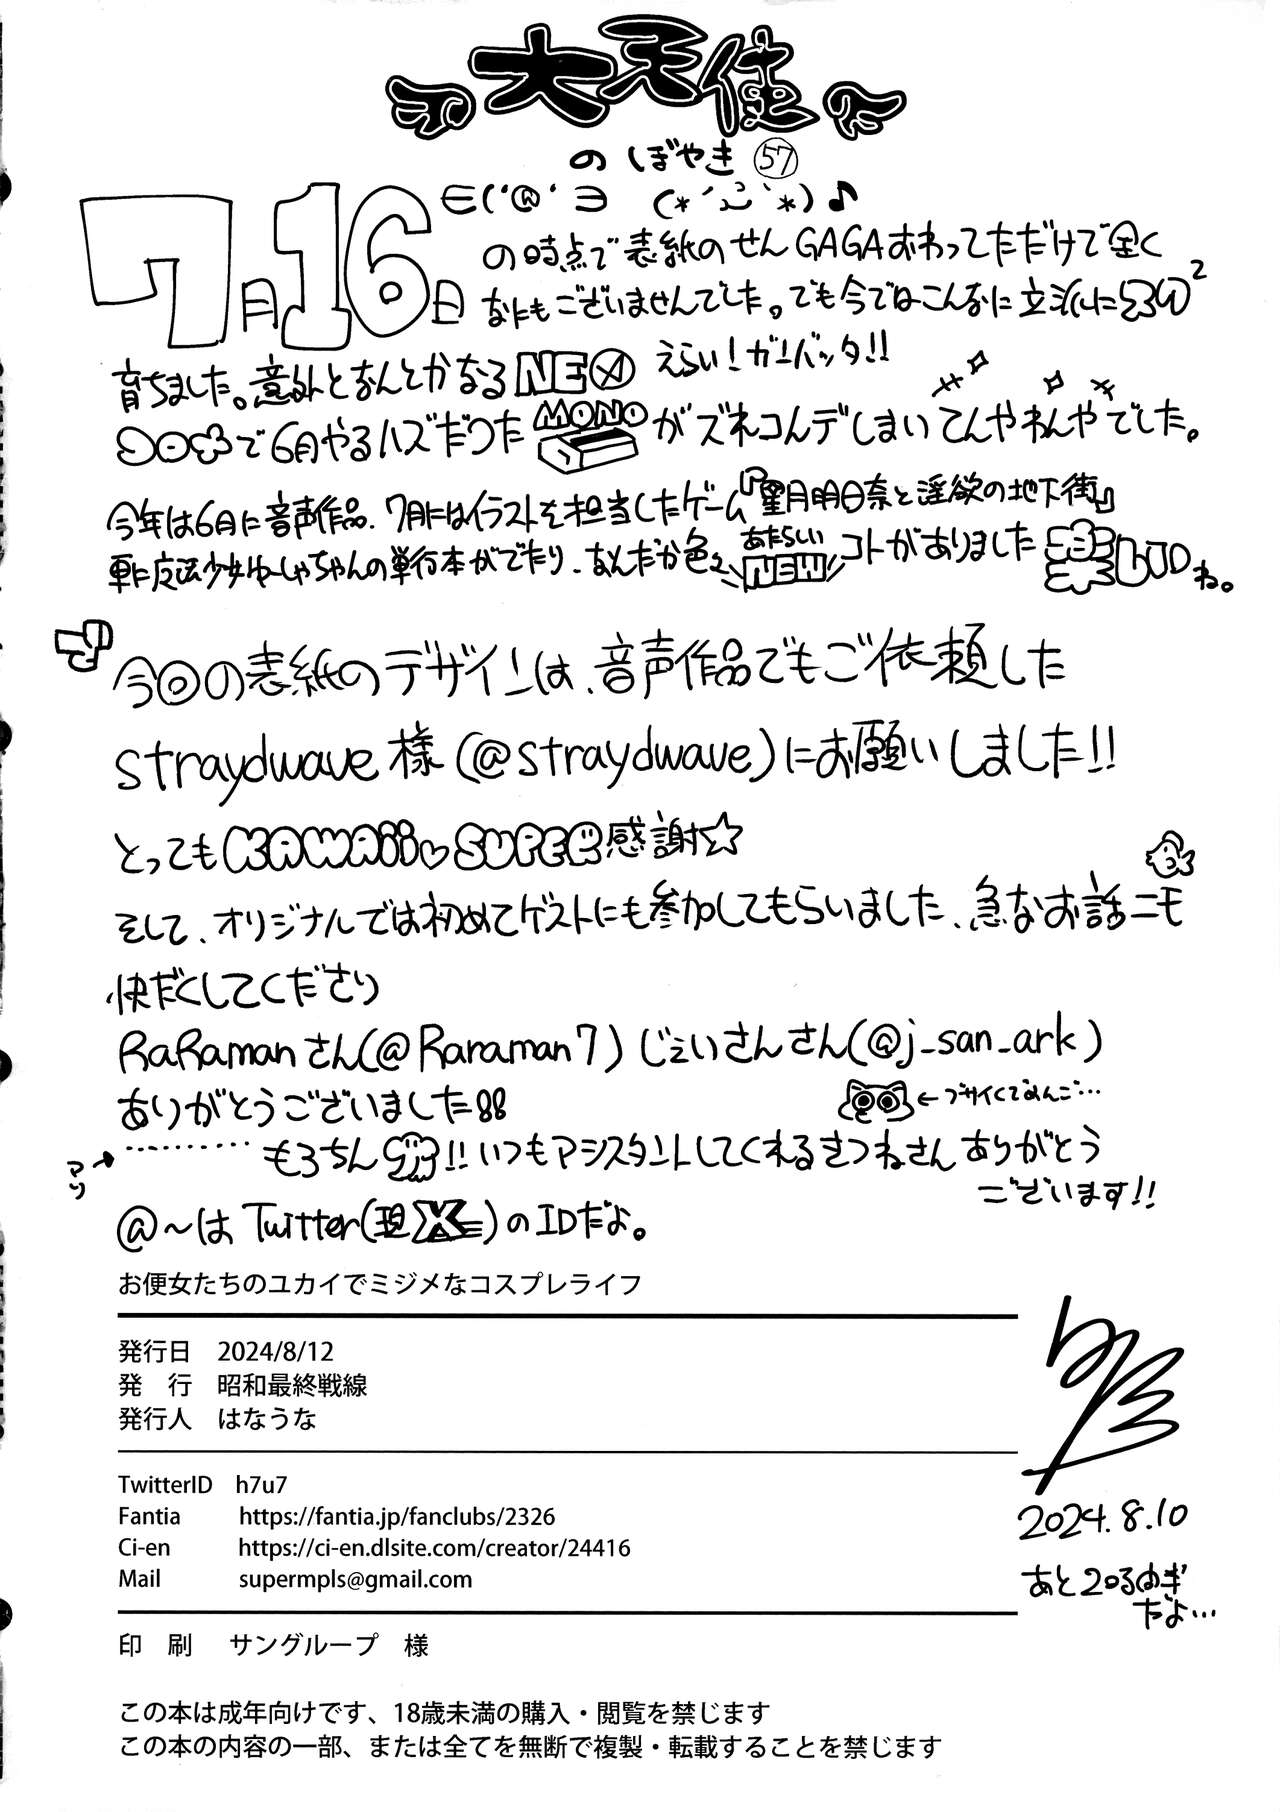 大天使
の ぼやき 57
7月16日
の時点で表紙のせんGAGAおわってただけで全く
なにもございませんでした。でも今ではこんなに立派に
育ちました。意外となんとかなるNE えらい！ガンバッタ!!
で6月やるハズだった MONO がズれコんデしまい てんやわんやでした。
今年は6月に音声作品、7月にはイラストを担当したゲーム『星月明日奈と淫欲の地下街』
更に魔法少女ゆーしゃちゃんの単行本がでたり、なんだか色々 あたらしい NEW コトがありました ね。
今回の表紙のデザインは、音声作品でもご依頼した
straydwave様(@straydwave)にお願いしました!!
とってもKAWAii♡SUPER感謝☆
そして、オリジナルでは初めてゲストにも参加してもらいました、急なお話ニモ
快だくしてくださり
RaRamanさん(@Raraman7) じぇいさんさん(@j_san_ark)
ありがとうございました!!
←ブサイくでめんご…
………… もろちん !! いつもアシスタントしてくれるきつねさんありがとう
ございます!!
@～はTwitter(現X)のIDだよ。
お便女たちのユカイでミジメなコスプレライフ
発行日 2024/8/12
発　行 昭和最終戦線
発行人 はなうな
TwitterID h7u7
Fantia https://fantia.jp/fanclubs/2326
Ci-en https://ci-en.dlsite.com/creator/24416
Mail supermpls@gmail.com
2024.8.10
だよ…
印　刷 サングループ 様
この本は成年向けです、18歳未満の購入・閲覧を禁じます
この本の内容の一部、または全てを無断で複製・転載することを禁じます